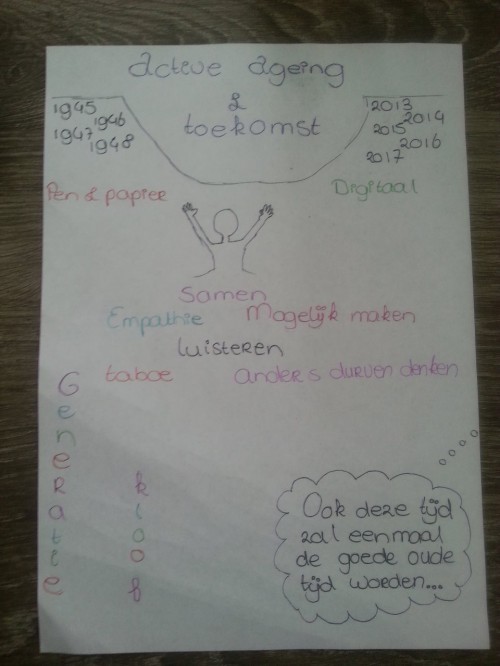 active ageing
&
toekomst
1945
1946
1947
1948
2013
2014
2015
2016
2017
Pen & papier
Digitaal
samen
Empathie
Mogelijk maken
luisteren
taboe
anders durven denken
Generatie
kloof
Ook deze tijd
zal eenmaal
de goede oude
tijd woeden...